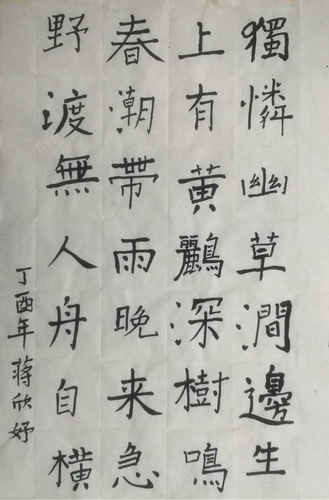 獨憐幽草澗邊生
上有黃鸝深樹鳴
春潮帶雨晚来急
野渡無人舟自橫
丁酉年蒋欣妤